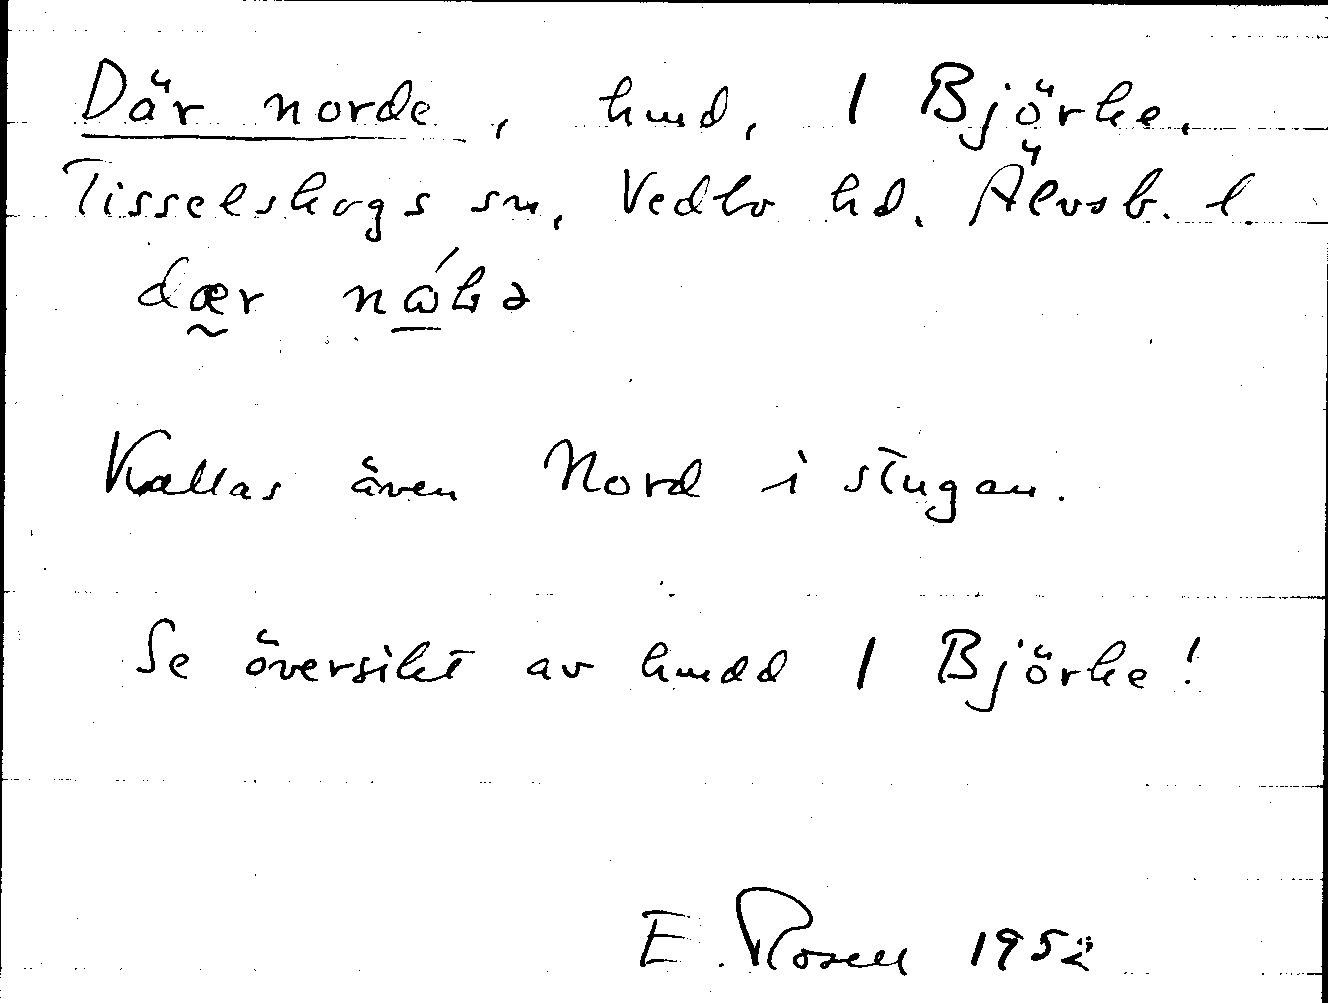 Där norde, hmd, 1 Björke,
Tisselskogs sn, Vedbo hd. Älvsb. l.
Kallas även Nord i stugan.
Se översikt av hmdd 1 Björke!
E. Rosell 1952